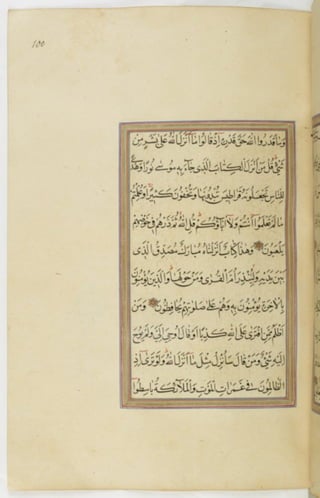 100
وما قدروا الله حق قدره اذ قالوا ما انزل الله على بشر من
شيء قل من انزل الكتاب الذي جاء به موسى نورا وهدى
للناس تجعلونه قراطيس تبدونها وتخفون كثيرا وعلمتم
ما لم تعلموا انتم ولا اباؤكم قل الله ثم ذرهم في خوضهم
يلعبون وهذا كتاب انزلناه مبارك مصدق الذي
بين يديه ولتنذر ام القرى ومن حولها والذين يؤمنون
بالاخرة يؤمنون به وهم على صلوتهم يحافظون ومن
اظلم ممن افترى على الله كذبا او قال اوحي الي ولم يوح
اليه شيء ومن قال سانزل مثل ما انزل الله ولو ترى اذ
الظالمون في غمرات الموت والملائكة باسطوا